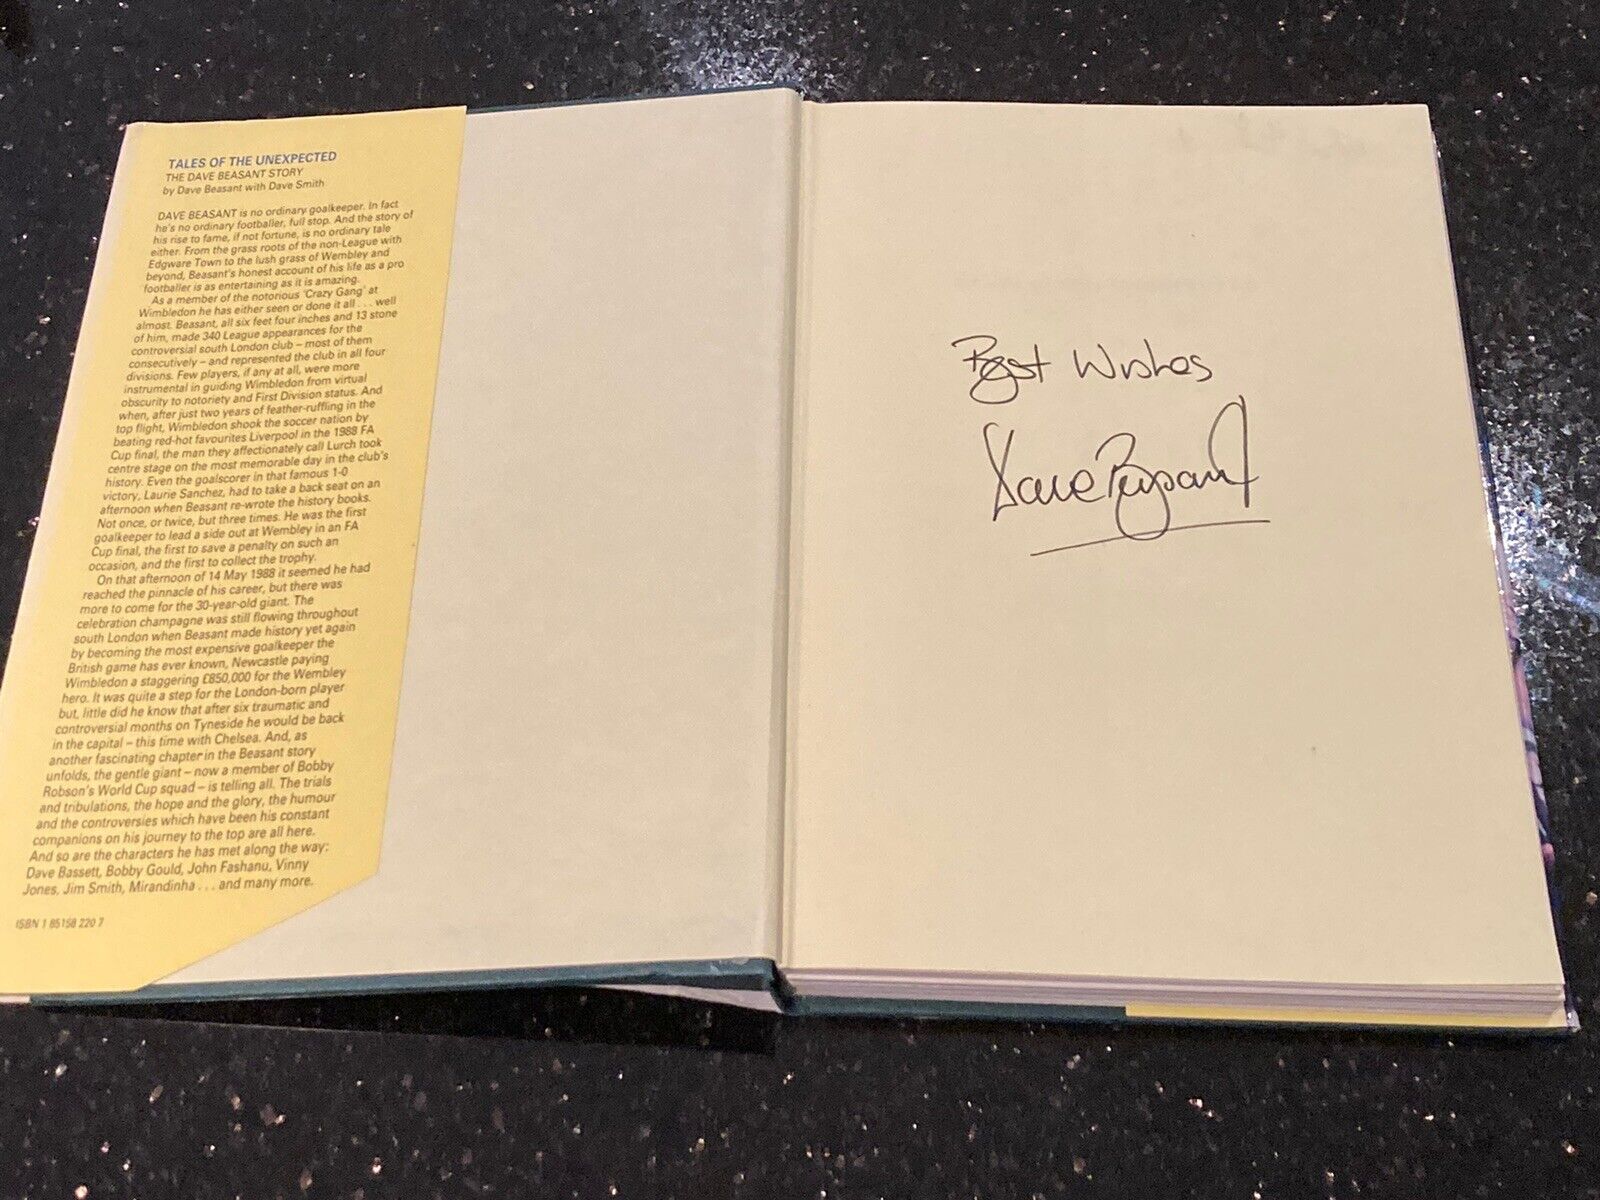 TALES OF THE UNEXPECTED
THE DAVE BEASANT STORY
by Dave Beasant with Dave Smith
DAVE BEASANT is no ordinary goalkeeper. In fact
he's no ordinary footballer, full stop. And the story of
his rise to fame, if not fortune, is no ordinary tale
either. From the grass roots of the non-League with
Edgware Town to the lush grass of Wembley and
beyond, Beasant's honest account of his life as a pro
footballer is as entertaining as it is amazing.
As a member of the notorious 'Crazy Gang' at
Wimbledon he has either seen or done it all . . . well
almost. Beasant, all six feet four inches and 13 stone
of him, made 340 League appearances for the
controversial south London club – most of them
consecutively – and represented the club in all four
divisions. Few players, if any at all, were more
instrumental in guiding Wimbledon from virtual
obscurity to notoriety and First Division status. And
when, after just two years of feather-ruffling in the
top flight, Wimbledon shook the soccer nation by
beating red-hot favourites Liverpool in the 1988 FA
Cup final, the man they affectionately call Lurch took
centre stage on the most memorable day in the club's
history. Even the goalscorer in that famous 1-0
victory, Laurie Sanchez, had to take a back seat on an
afternoon when Beasant re-wrote the history books.
Not once, or twice, but three times. He was the first
goalkeeper to lead a side out at Wembley in an FA
Cup final, the first to save a penalty on such an
occasion, and the first to collect the trophy.
On that afternoon of 14 May 1988 it seemed he had
reached the pinnacle of his career, but there was
more to come for the 30-year-old giant. The
celebration champagne was still flowing throughout
south London when Beasant made history yet again
by becoming the most expensive goalkeeper the
British game has ever known, Newcastle paying
Wimbledon a staggering £850,000 for the Wembley
hero. It was quite a step for the London-born player
but, little did he know that after six traumatic and
controversial months on Tyneside he would be back
in the capital – this time with Chelsea. And, as
another fascinating chapter in the Beasant story
unfolds, the gentle giant – now a member of Bobby
Robson's World Cup squad – is telling all. The trials
and tribulations, the hope and the glory, the humour
and the controversies which have been his constant
companions on his journey to the top are all here.
And so are the characters he has met along the way:
Dave Bassett, Bobby Gould, John Fashanu, Vinny
Jones, Jim Smith, Mirandinha . . . and many more.
ISBN 1 85158 220 7
Best Wishes
Dave Beasant